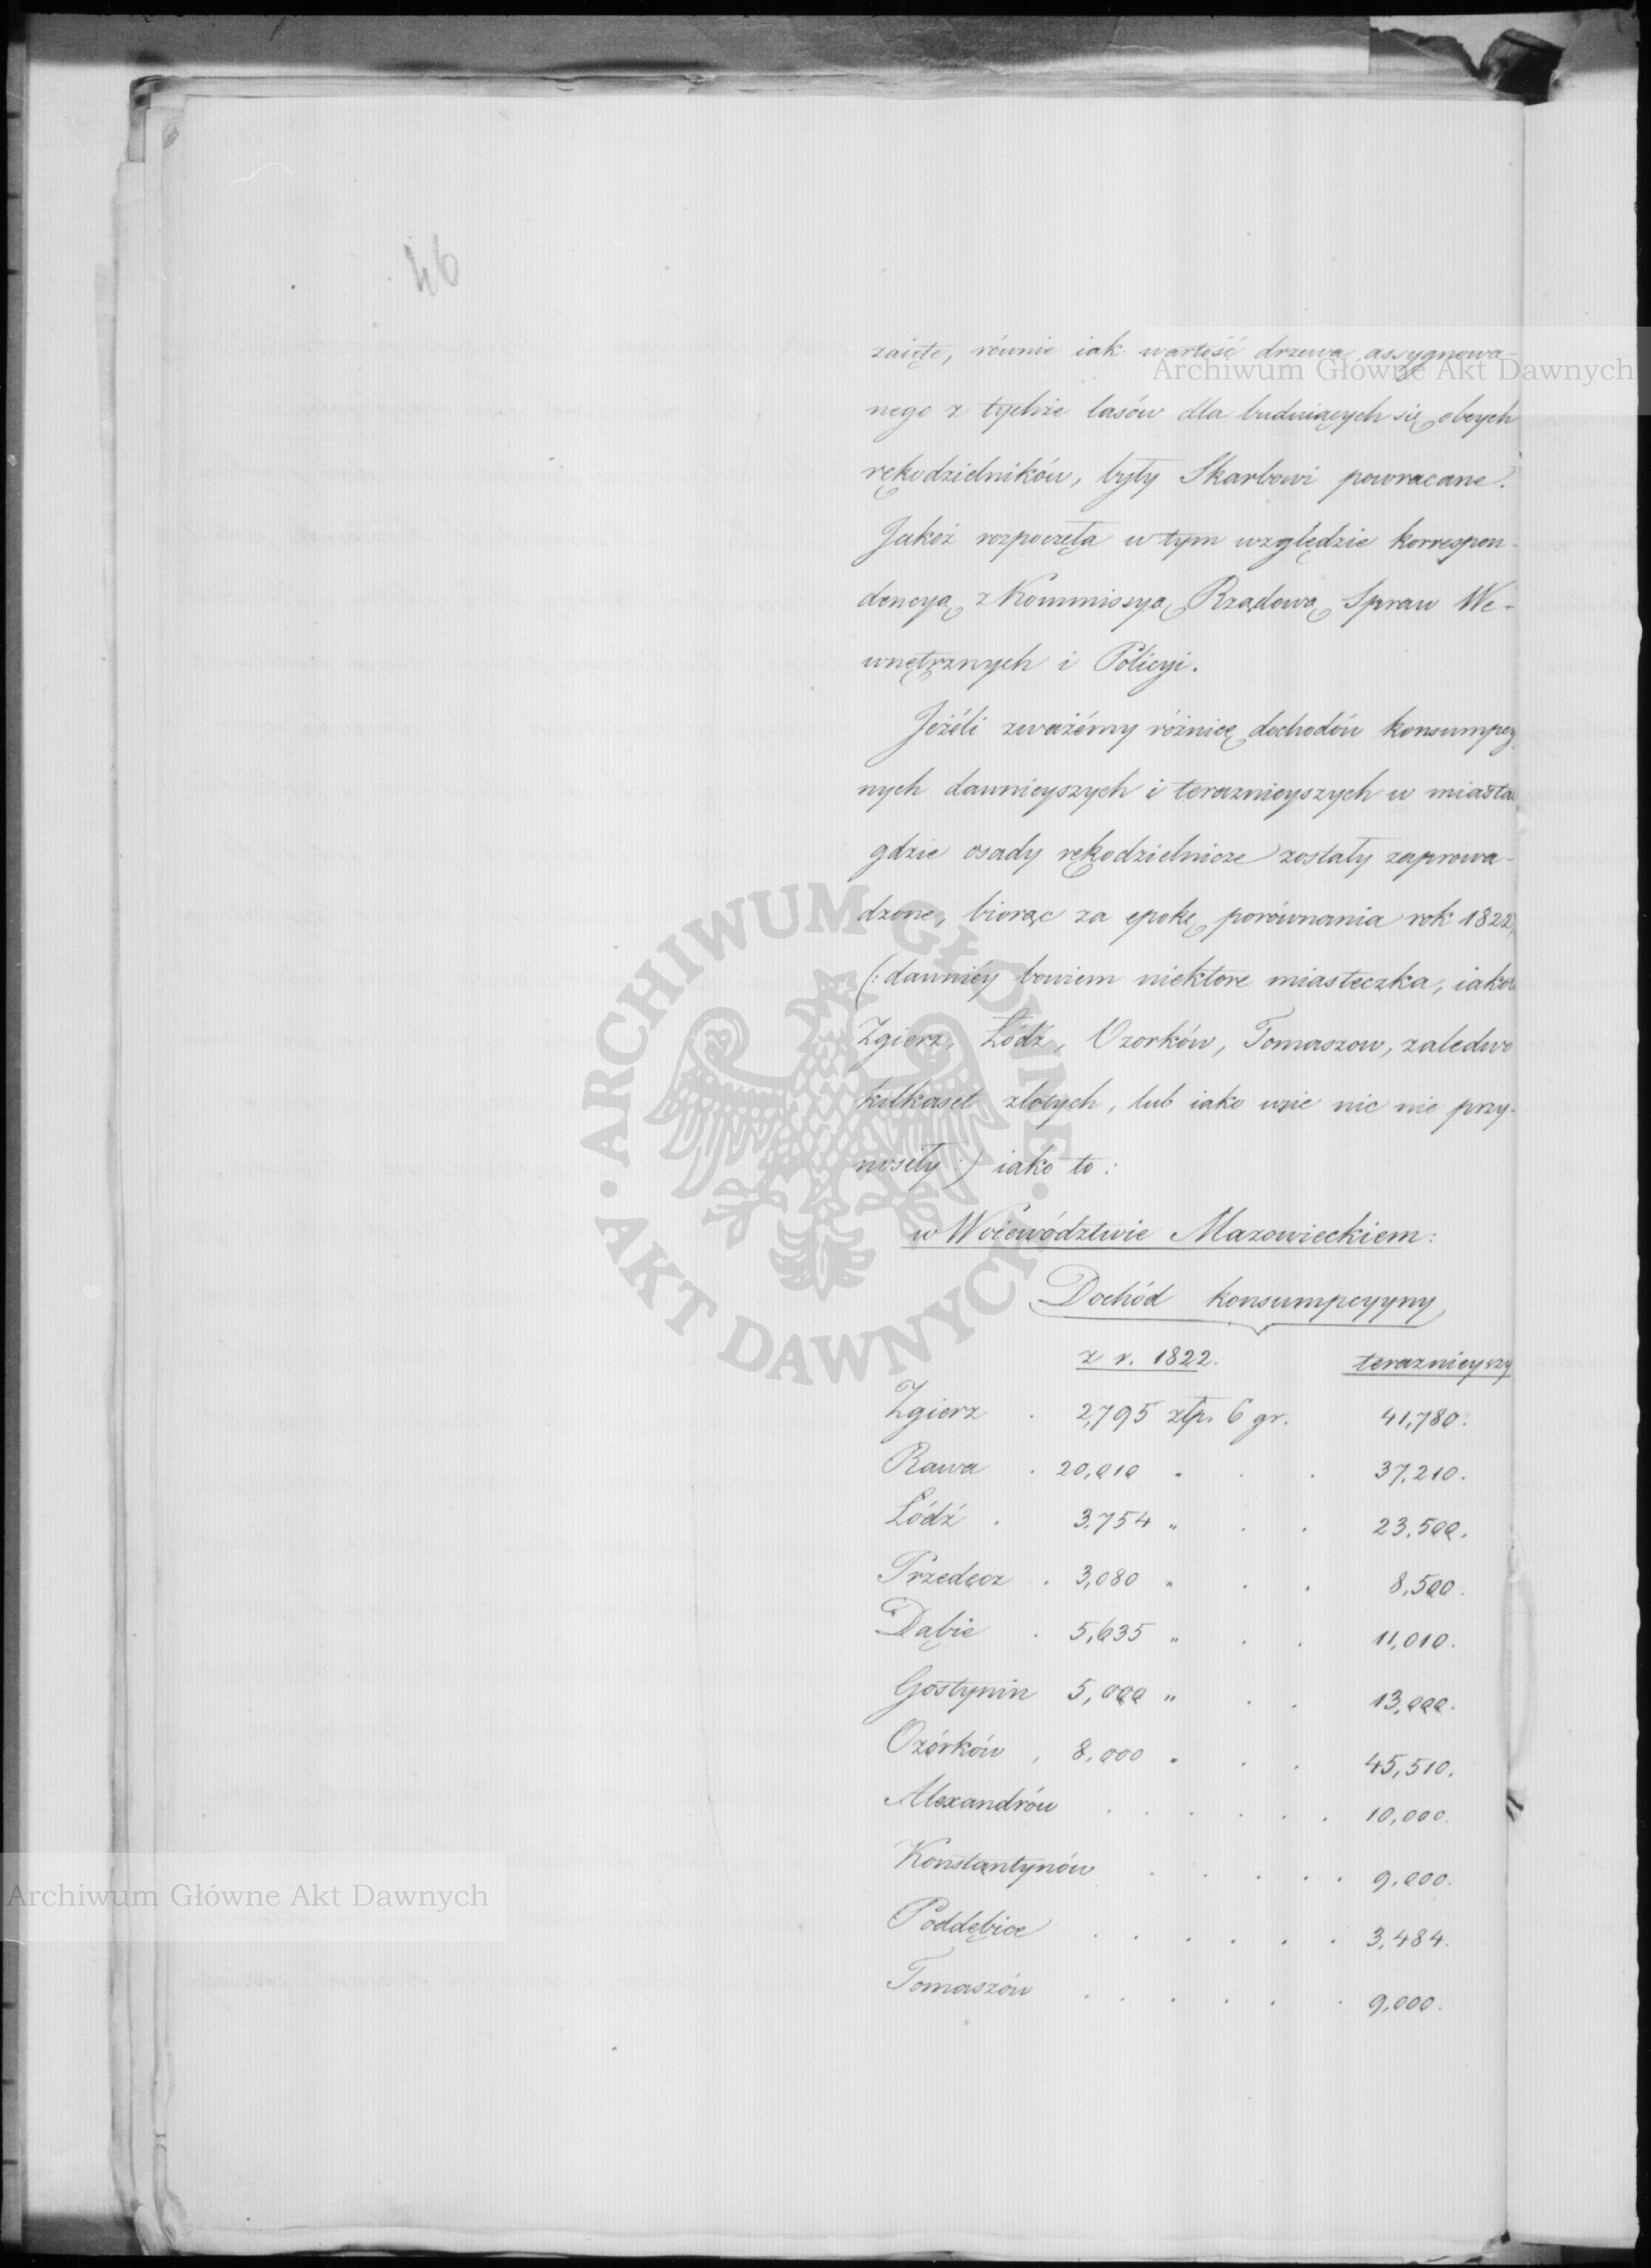 46
zaięte, równie iak wartość drzewa assygnowa-
Archiwum Główne Akt Dawnych
nego z tychże lasów dla buduiących się obcych
rękodzielników, były Skarbowi powracane.
Jakoż rozpoczęła w tym względzie korrespon-
dencyą z Kommissyą Rządową Spraw We-
wnętrznych i Policyi.
Jeżéli zważémy różnicę dochodów konsumpcy
nych dawnieyszych i teraznieyszych w miasta
gdzie osady rękodzielnicze zostały zaprowa-
dzone, biorąc za epokę porównania rok 1822,
(: dawniéy bowiem niektore miasteczka, iako
Zgierz, Łódź, Ozorków, Tomaszow, zaledwo
kilkaset złotych, lub iako wsie nic nie przy-
nosiły :) iako to:
w Woiewództwie Mazowieckiem:
Dochód konsumpcyyny
z r. 1822. teraznieyszy
Zgierz . 2,795 złp. 6 gr. 41,780.
Rawa . 20,010 " . . 37,210.
Łódź . 3,754 " . . 23,500.
Przedecz . 3,080 " . . 8,500.
Dąbie . 5,635 " . . 11,010.
Gostynin 5,000 " . . 13,000.
Ozórków . 8,000 " . . 45,510.
Alexandrów . . . . . . 10,000.
Konstantynów . . . . . 9,000.
Poddębice . . . . . . 3,484.
Tomaszów . . . . . . 9,000.
ARCHIWUM GŁÓWNE AKT DAWNYCH
Archiwum Główne Akt Dawnych